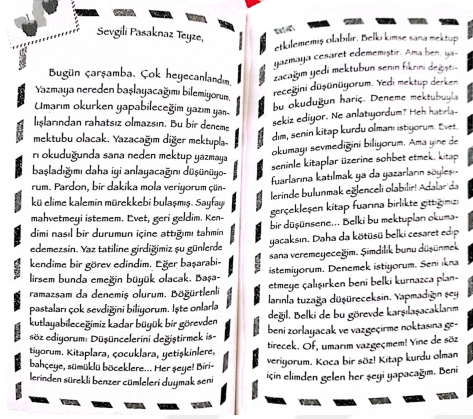 Sevgili Pasaknaz Teyze,
Bugün çarşamba. Çok heyecanlandım.
Yazmaya nereden başlayacağımı bilemiyorum.
Umarım okurken yapabileceğim yazım yan-
lışlarından rahatsız olmazsın. Bu bir deneme
mektubu olacak. Yazacağım diğer mektupla-
rı okuduğunda sana neden mektup yazmaya
başladığımı daha iyi anlayacağını düşünüyo-
rum. Pardon, bir dakika mola veriyorum çün-
kü elime kalemin mürekkebi bulaşmış. Sayfayı
mahvetmeyi istemem. Evet, geri geldim. Ken-
dimi nasıl bir durumun içine attığımı tahmin
edemezsin. Yaz tatiline girdiğimiz şu günlerde
kendime bir görev edindim. Eğer başarabi-
lirsem bunda emeğin büyük olacak. Başa-
ramazsam da denemiş olurum. Böğürtlenli
pastaları çok sevdiğini biliyorum. İşte onlarla
kutlayabileceğimiz kadar büyük bir görevden
söz ediyorum: Düşüncelerini değiştirmek is-
tiyorum. Kitaplara, çocuklara, yetişkinlere,
bahçeye, sümüklü böceklere... Her şeye! Biri-
lerinden sürekli benzer cümleleri duymak seni
etkilememiş olabilir. Belki kimse sana mektup
yazmaya cesaret edememiştir. Ama ben, ya-
zacağım yedi mektubun senin fikrini değişti-
receğini düşünüyorum. Yedi mektup derken
bu okuduğun hariç. Deneme mektubuyla
sekiz ediyor. Ne anlatıyordum? Heh hatırla-
dım, senin kitap kurdu olmanı istiyorum. Evet,
okumayı sevmediğini biliyorum. Ama yine de
seninle kitaplar üzerine sohbet etmek, kitap
fuarlarına katılmak ya da yazarların söyleşi-
lerinde bulunmak eğlenceli olabilir! Adalar'da
gerçekleşen kitap fuarına birlikte gittiğimizi
bir düşünsene... Belki bu mektupları okuma-
yacaksın. Daha da kötüsü belki cesaret edip
sana veremeyeceğim. Şimdilik bunu düşünmek
istemiyorum. Denemek istiyorum. Seni ikna
etmeye çalışırken beni belki kurnazca plan-
larınla tuzağa düşüreceksin. Yapmadığın şey
değil. Belki de bu görevde karşılaşacaklarım
beni zorlayacak ve vazgeçirme noktasına ge-
tirecek. Of, umarım vazgeçmem! Yine de söz
veriyorum. Koca bir söz! Kitap kurdu olman
için elimden gelen her şeyi yapacağım. Beni